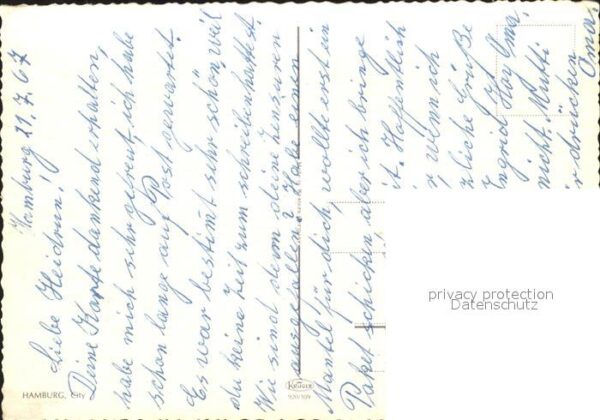 Hamburg 21.7.67
Liebe Heidrun!
Deine Karte dankend erhalten,
habe mich sehr gefreut, ich habe
schon lange auf Post gewartet.
Es war bestimt sehr schön, weil
du keine Zeit zum schreiben hattest.
Wie sind denn deine Zensuren
ausgefallen? Habe einen
Mantel für dich, wollte erst ein
Paket schicken, aber ich bringe
it. Hoffentlich
wenn ich
zliche Grüße
Ingrid Oma.
nicht. Mutti
drücken
Oma.
HAMBURG, City
KRÜGER
920/109
privacy protection
Datenschutz